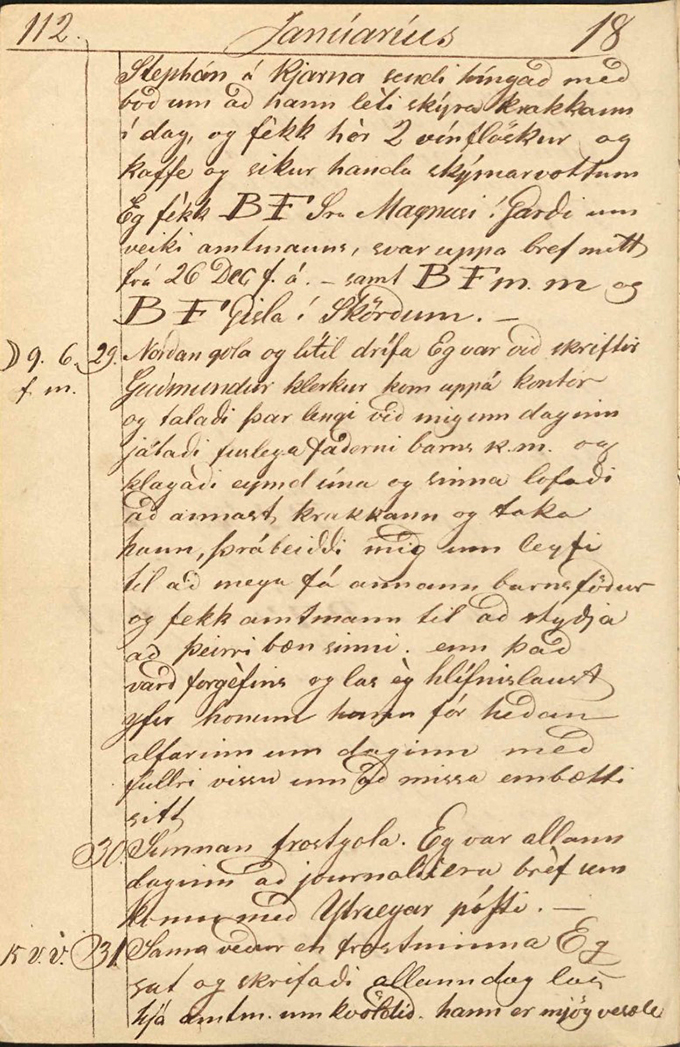 112. Janúaríus 18
Stephán á Kjarna sendi híngað með
boð um að hann léti skýra krakkann
í dag, og fèkk hèr 2 vínflöskur og
kaffe og sikur handa skýrnarvottum
Eg fèkk BF Sra Magnusi í Garði um
veiki amtmanns, svar uppa bref mitt
frá 26 Dec, f. á. – samt BF m. m og
BF Gisla í Skörðum. –
9. 6. f. m. 29. Norðan gola og lítil drífa Eg var við skriftir
Guðmundur klerkur kom uppá kontór
og talaði þar lengi við mig um daginn
játaði fuslega faðerni barns k.m. og
klagaði eymd sína og sinna lofaði
að annast krakkann og taka
hann, þrábeiddi mig um leyfi
til að mega fá annann barnsföður
og fekk amtmann til að styðja
að þeirri bæn sinni. enn það
varð forgèfins og las èg hlífnislaust
yfir honum hann fór hedan
alfarinn um daginn með
fullri vissu um að missa embætti
sitt
30. Sunnan frostgola. Eg var allann
daginn að journalisera brèf sem
komu með Ytreyar pósti. –
K v. v. 31. Sama veður en frostminna Eg
sat og skrifaði allann dag las
hjá amtm. um kvöldið. hann er mjög vesæll